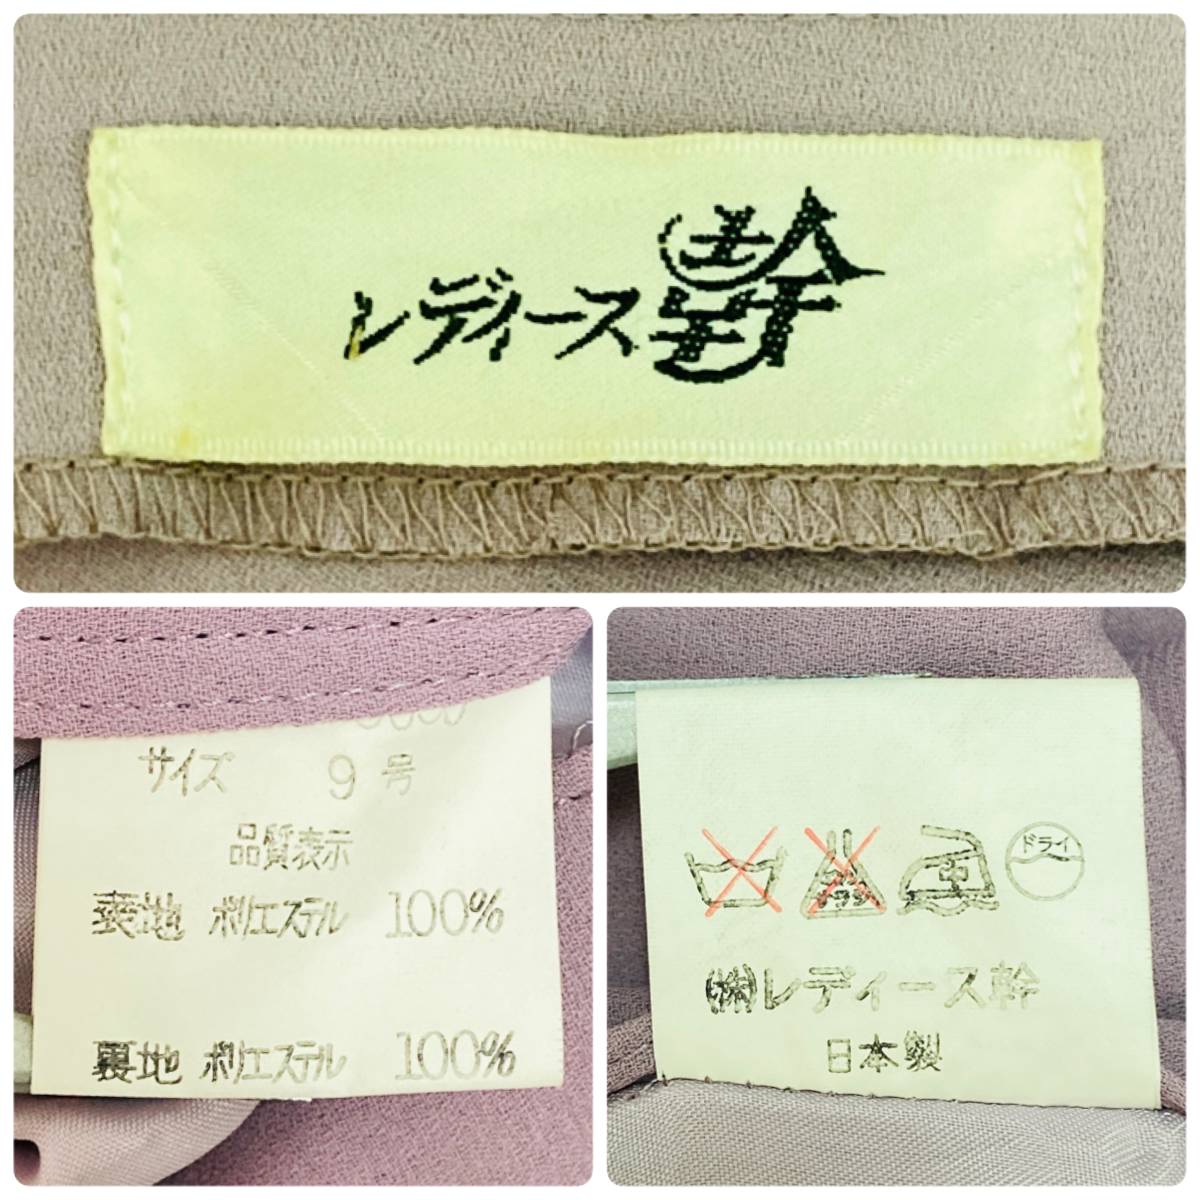 レディース幹
サイズ 9号
品質表示
表地 ポリエステル 100%
裏地 ポリエステル 100%
エンソサラシ
中
ドライ
㈱レディース幹
日本製